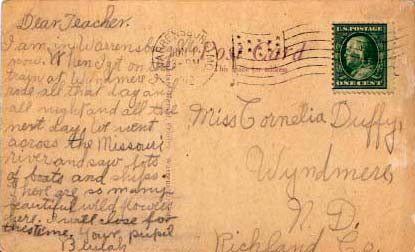 Dear Teacher.
I am in Warrensburg
now. When I got on the
train at Wyndmere I
rode all that day and
all night and all the
next day. We went
across the Missouri
river and saw lots
of boats and ships.
There are so many
beautiful wild flowers
here. I will close for
this time, Your pupil
Beulah
WARRENSBURG, MO.
Post Card
This Space for address
U.S. POSTAGE
ONE CENT
Miss Cornelia Duffy,
Wyndmere,
N. D.
Richland Co.